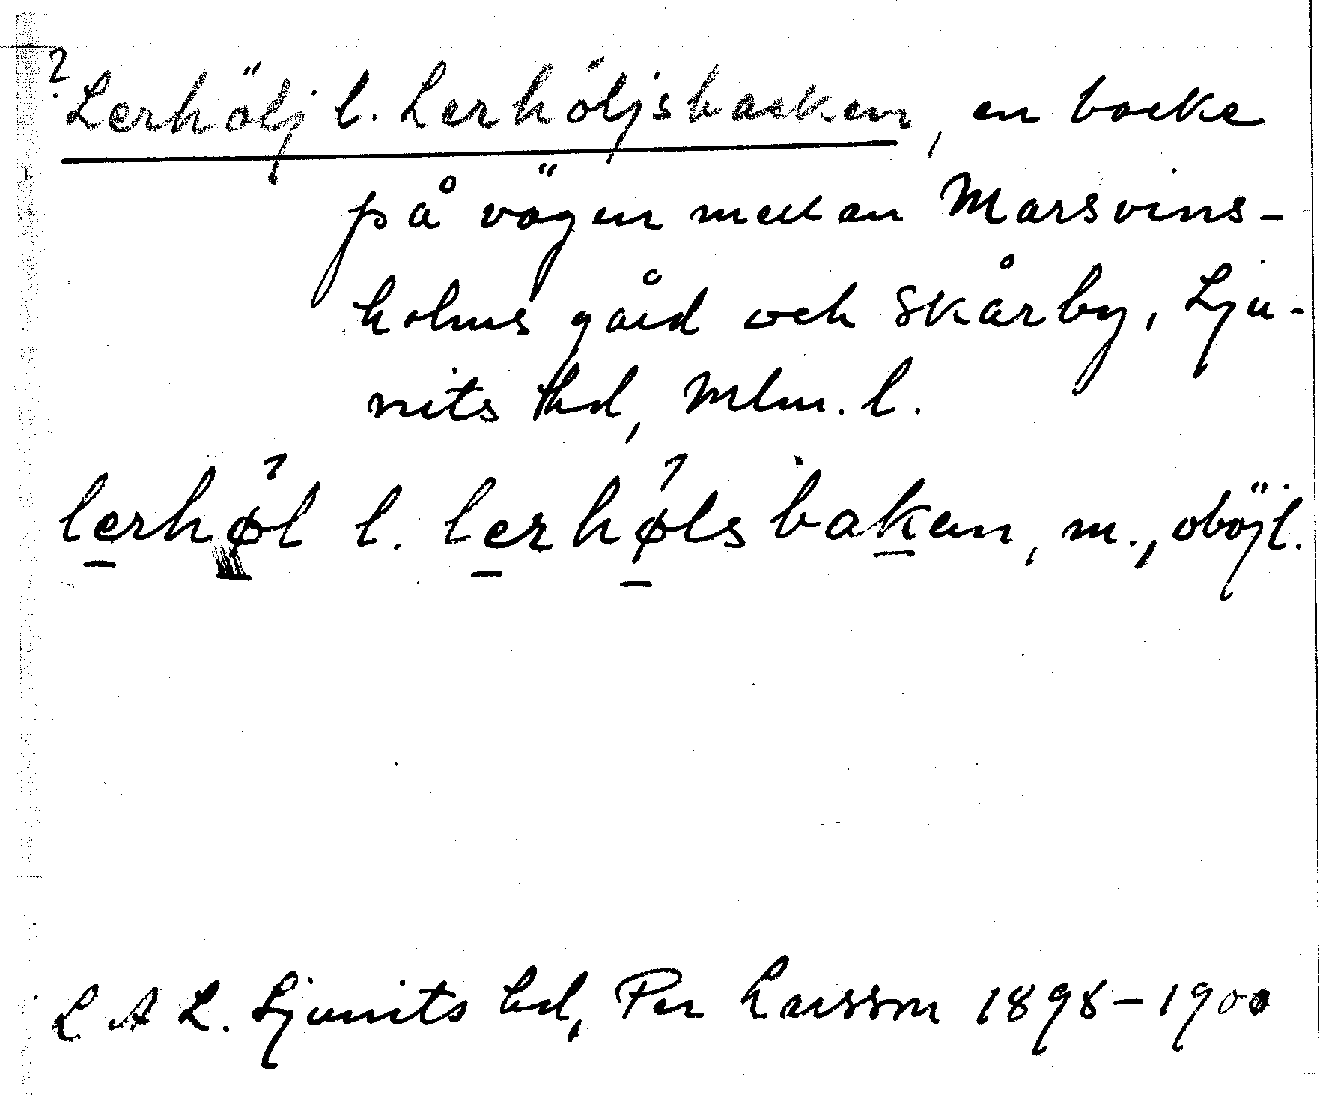 ? Lerhölj l. Lerhöljsbacken, en backe
på vägen mellan Marsvins-
holms gård och Skårby, Lju-
nits hd, Mlm. l.
lerhøl l. lerhølsbakan, m., oböjl.
L A L. Ljunits hd, Per Larsson 1898-1900